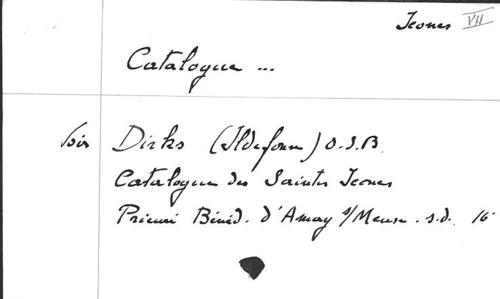 Icones VII
Catalogue ...
Voir Dirks (Ildefonse) O.S.B.
Catalogue des Saintes Icones
Prieuré Bénéd. d'Amay s/Meuse. s.d. 16°